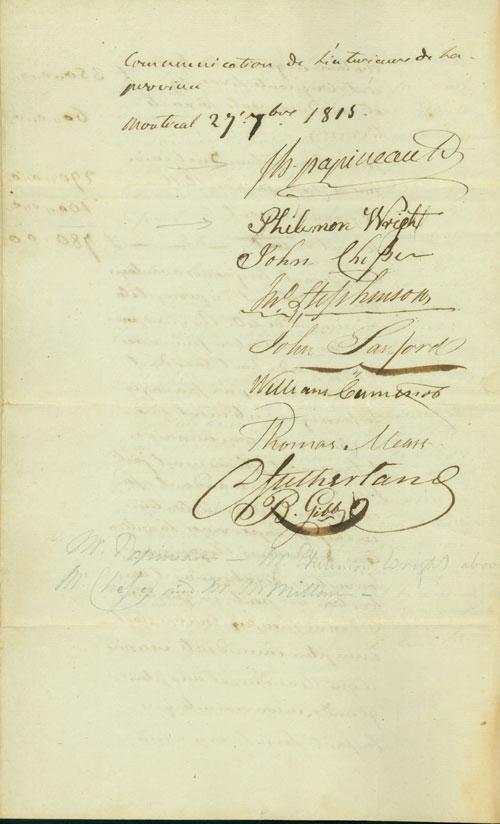 Communication de L'interieure de La
province
Montreal 27 7bre 1815.
Jh. papineau
Philemon Wright
John Chesser
John Sanford
William Cumming
Thomas Mears
D Sutherland
B. Gibb
Mr. Papineau - Mr Philemon Wright above
Mr. Chesser and Mr. McMillan -